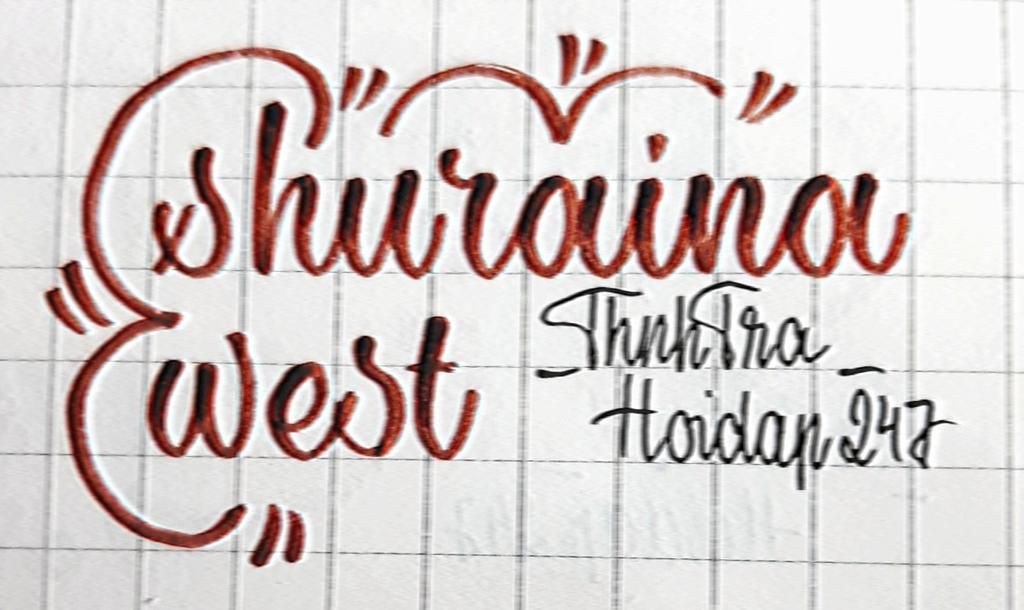 shuraina
west
_ThnhTra_
Hoidap247